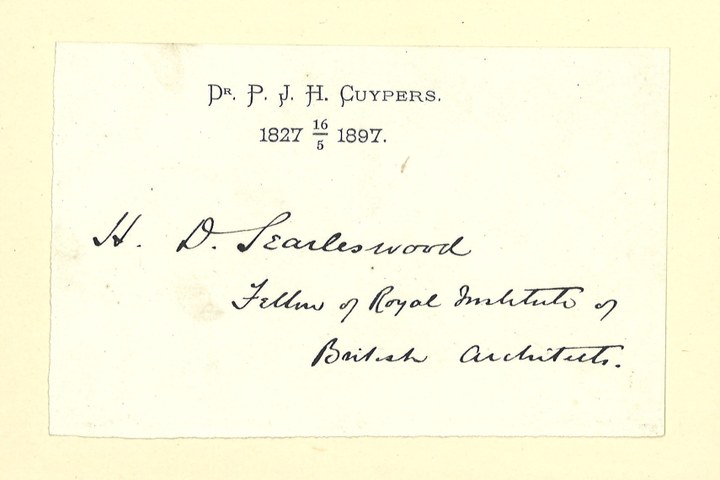 Dr. P. J. H. Cuypers.
1827 16/5 1897.
H. D. Searleswood
Fellow of Royal Institute of
British Architects.